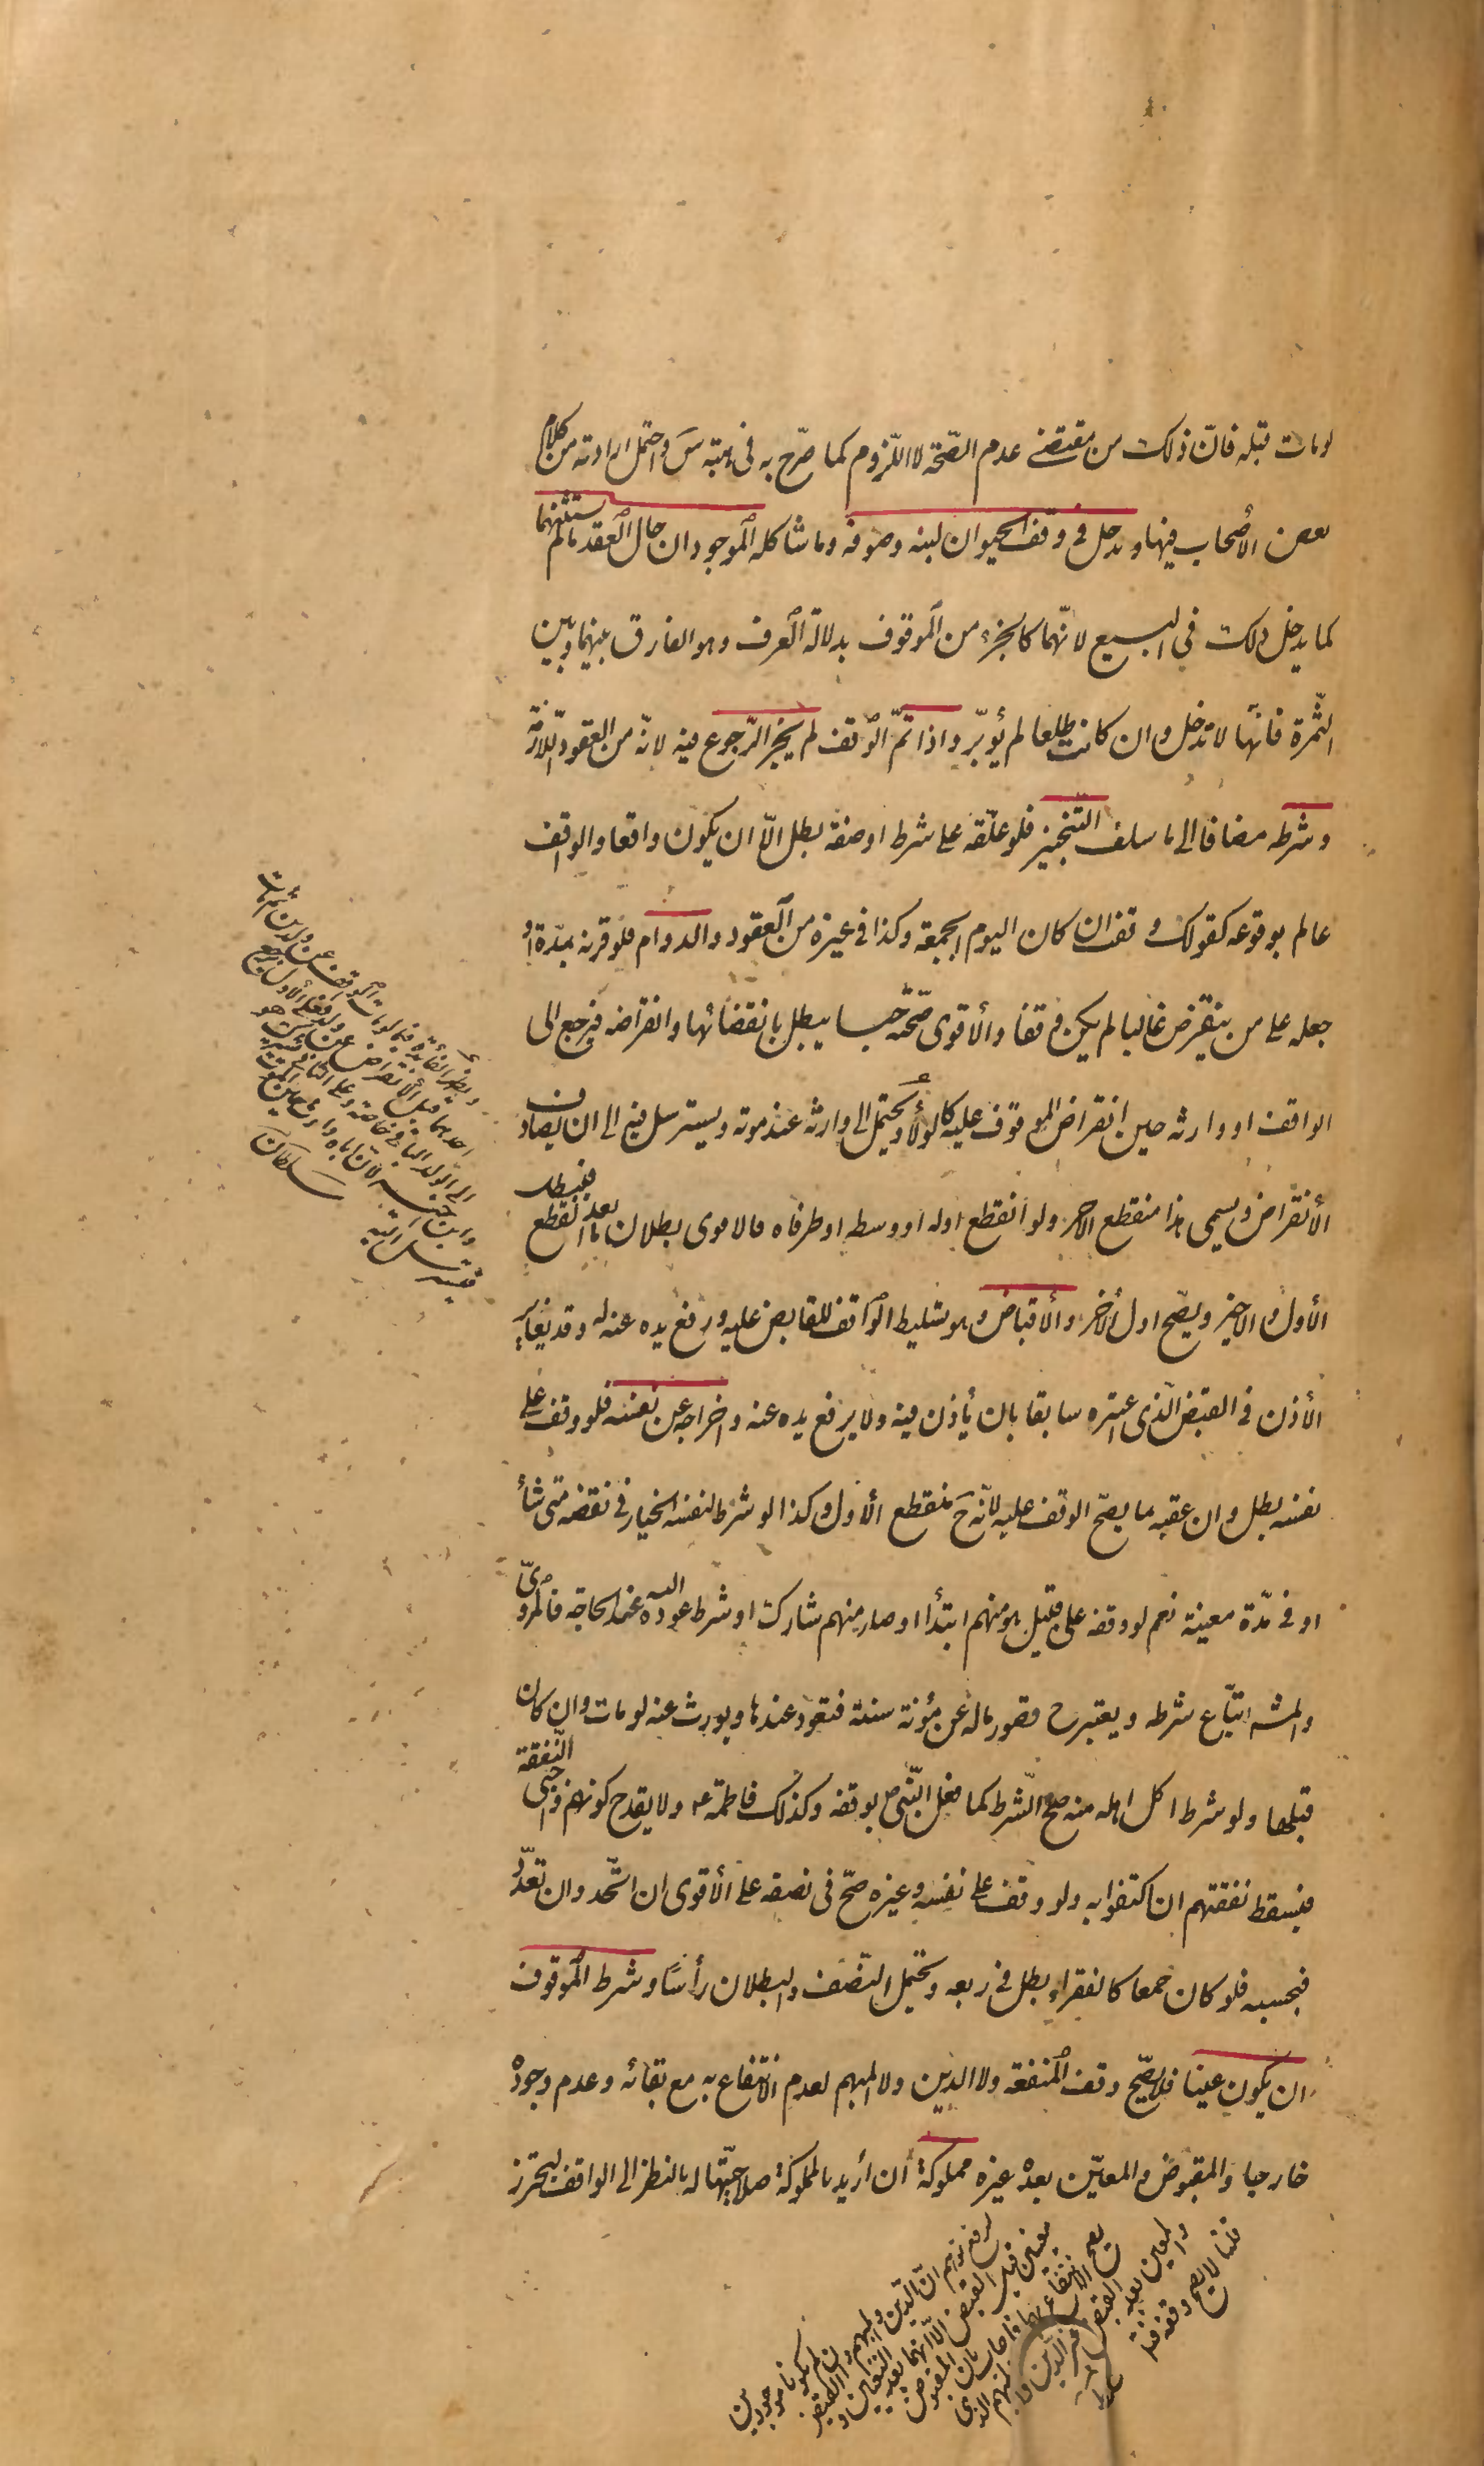 لو مات قبله فانّ ذلك من مقتضى عدم الصّحّة لا اللّزوم كما صرّح به فى هبته س واحتمل ارادته من كلام
بعض الأصحاب فيها ويدخل فى وقف الحيوان لبنه وصوفه وما شاكله الموجودان حال العقد ما لم يستثنهما
كما يدخل ذلك فى البيع لانّهما كالجزء من الموقوف بدلالة العرف وهو الفارق بينهما وبين
الثّمرة فانّها لا تدخل وان كانت طلعا لم يؤبّر واذا تمّ الوقف لم يجز الرّجوع فيه لانّه من العقود اللّازمة
وشرطه مضافا الى ما سلف التّنجيز فلو علّقه على شرط او صفة بطل الّا ان يكون واقعا والواقف
عالم بوقوعه كقوله وقفت ان كان اليوم الجمعة وكذا فى غيره من العقود والدوام فلو قرنه بمدّة او
جعله على من ينقرض غالبا لم يكن وقفا والأقوى صحّته حبسا يبطل بانقضائها وانقراضه فيرجع الى
الواقف او وارثه حين انقراض الموقوف عليه كالولاء ويحتمل الى وارثه عند موته ويسترسل فيه الى ان يصادف
الأنقراض ويسمى هذا منقطع الاخر ولو انقطع اوله او وسطه او طرفاه فالاقوى بطلان ما بعد القطع فيبطل
الأول والاخير ويصح اول الأخر والأقباض وهو تسليط الواقف للقابض عليه ورفع يده عنه له وقد يغاير
الأذن فى القبض الّذى اعتبره سابقا بان يأذن فيه ولا يرفع يده عنه واخراجه عن نفسه فلو وقف على
نفسه بطل وان عقبه ما يصحّ الوقف عليه لانّه ح منقطع الأول وكذا لو شرط لنفسه الخيار فى نقضه متى شأ
او فى مدّة معينة نعم لو وقفه على قبيل هو منهم ابتدأ او صار منهم شارك او شرط عوده اليه عند الحاجة فالمروىّ
والمشه اتّباع شرطه ويعتبر ح قصور ماله عن مؤنة سنة فتعود عندها ويورث عنه لو مات وان كان
قبلها ولو شرط اكل اهله منه صح الشّرط كما فعل النّبى ص بوقفه وكذلك فاطمة ع ولا يقدح كونهم واجبى النّفقة
فيسقط نفقتهم ان اكتفوا به ولو وقف على نفسه وغيره صحّ فى نصفه على الأقوى ان اتّحد وان تعدّد
فبحسبه فلو كان جمعا كالفقراء بطل فى ربعه ويحتمل النّصف والبطلان رأسًا وشرط الموقوف
ان يكون عينا فلا يصّح وقف المنفعة ولا الدين ولا المبهم لعدم الانتفاع به مع بقائه وعدم وجوده
خارجا والمقبوض والمعيّن بعده غيره مملوكة أن أريد بالمملوكة صلاحيّتها له بالنظر الى الواقف ليحترز
ويظهر الفائدة فيما لو مات الواقف عن ولدين ثم مات
احدهما قبل الأنقراض عن ولد فعلى الأول يرجع
الى الولد الباقى خاصة وعلى الثانى
سلطان
لدفع توهم انّ الدّين والمبهم وان لم يكونا موجودين
معينين قبل القبض الّا انهما بعد التعيين والقبض
يصح الانتفاع بهما فاجاب بان المقبوض
والمعين بعد القبض غير الدّين والمبهم الذى
قلنا لا يصح وقفه